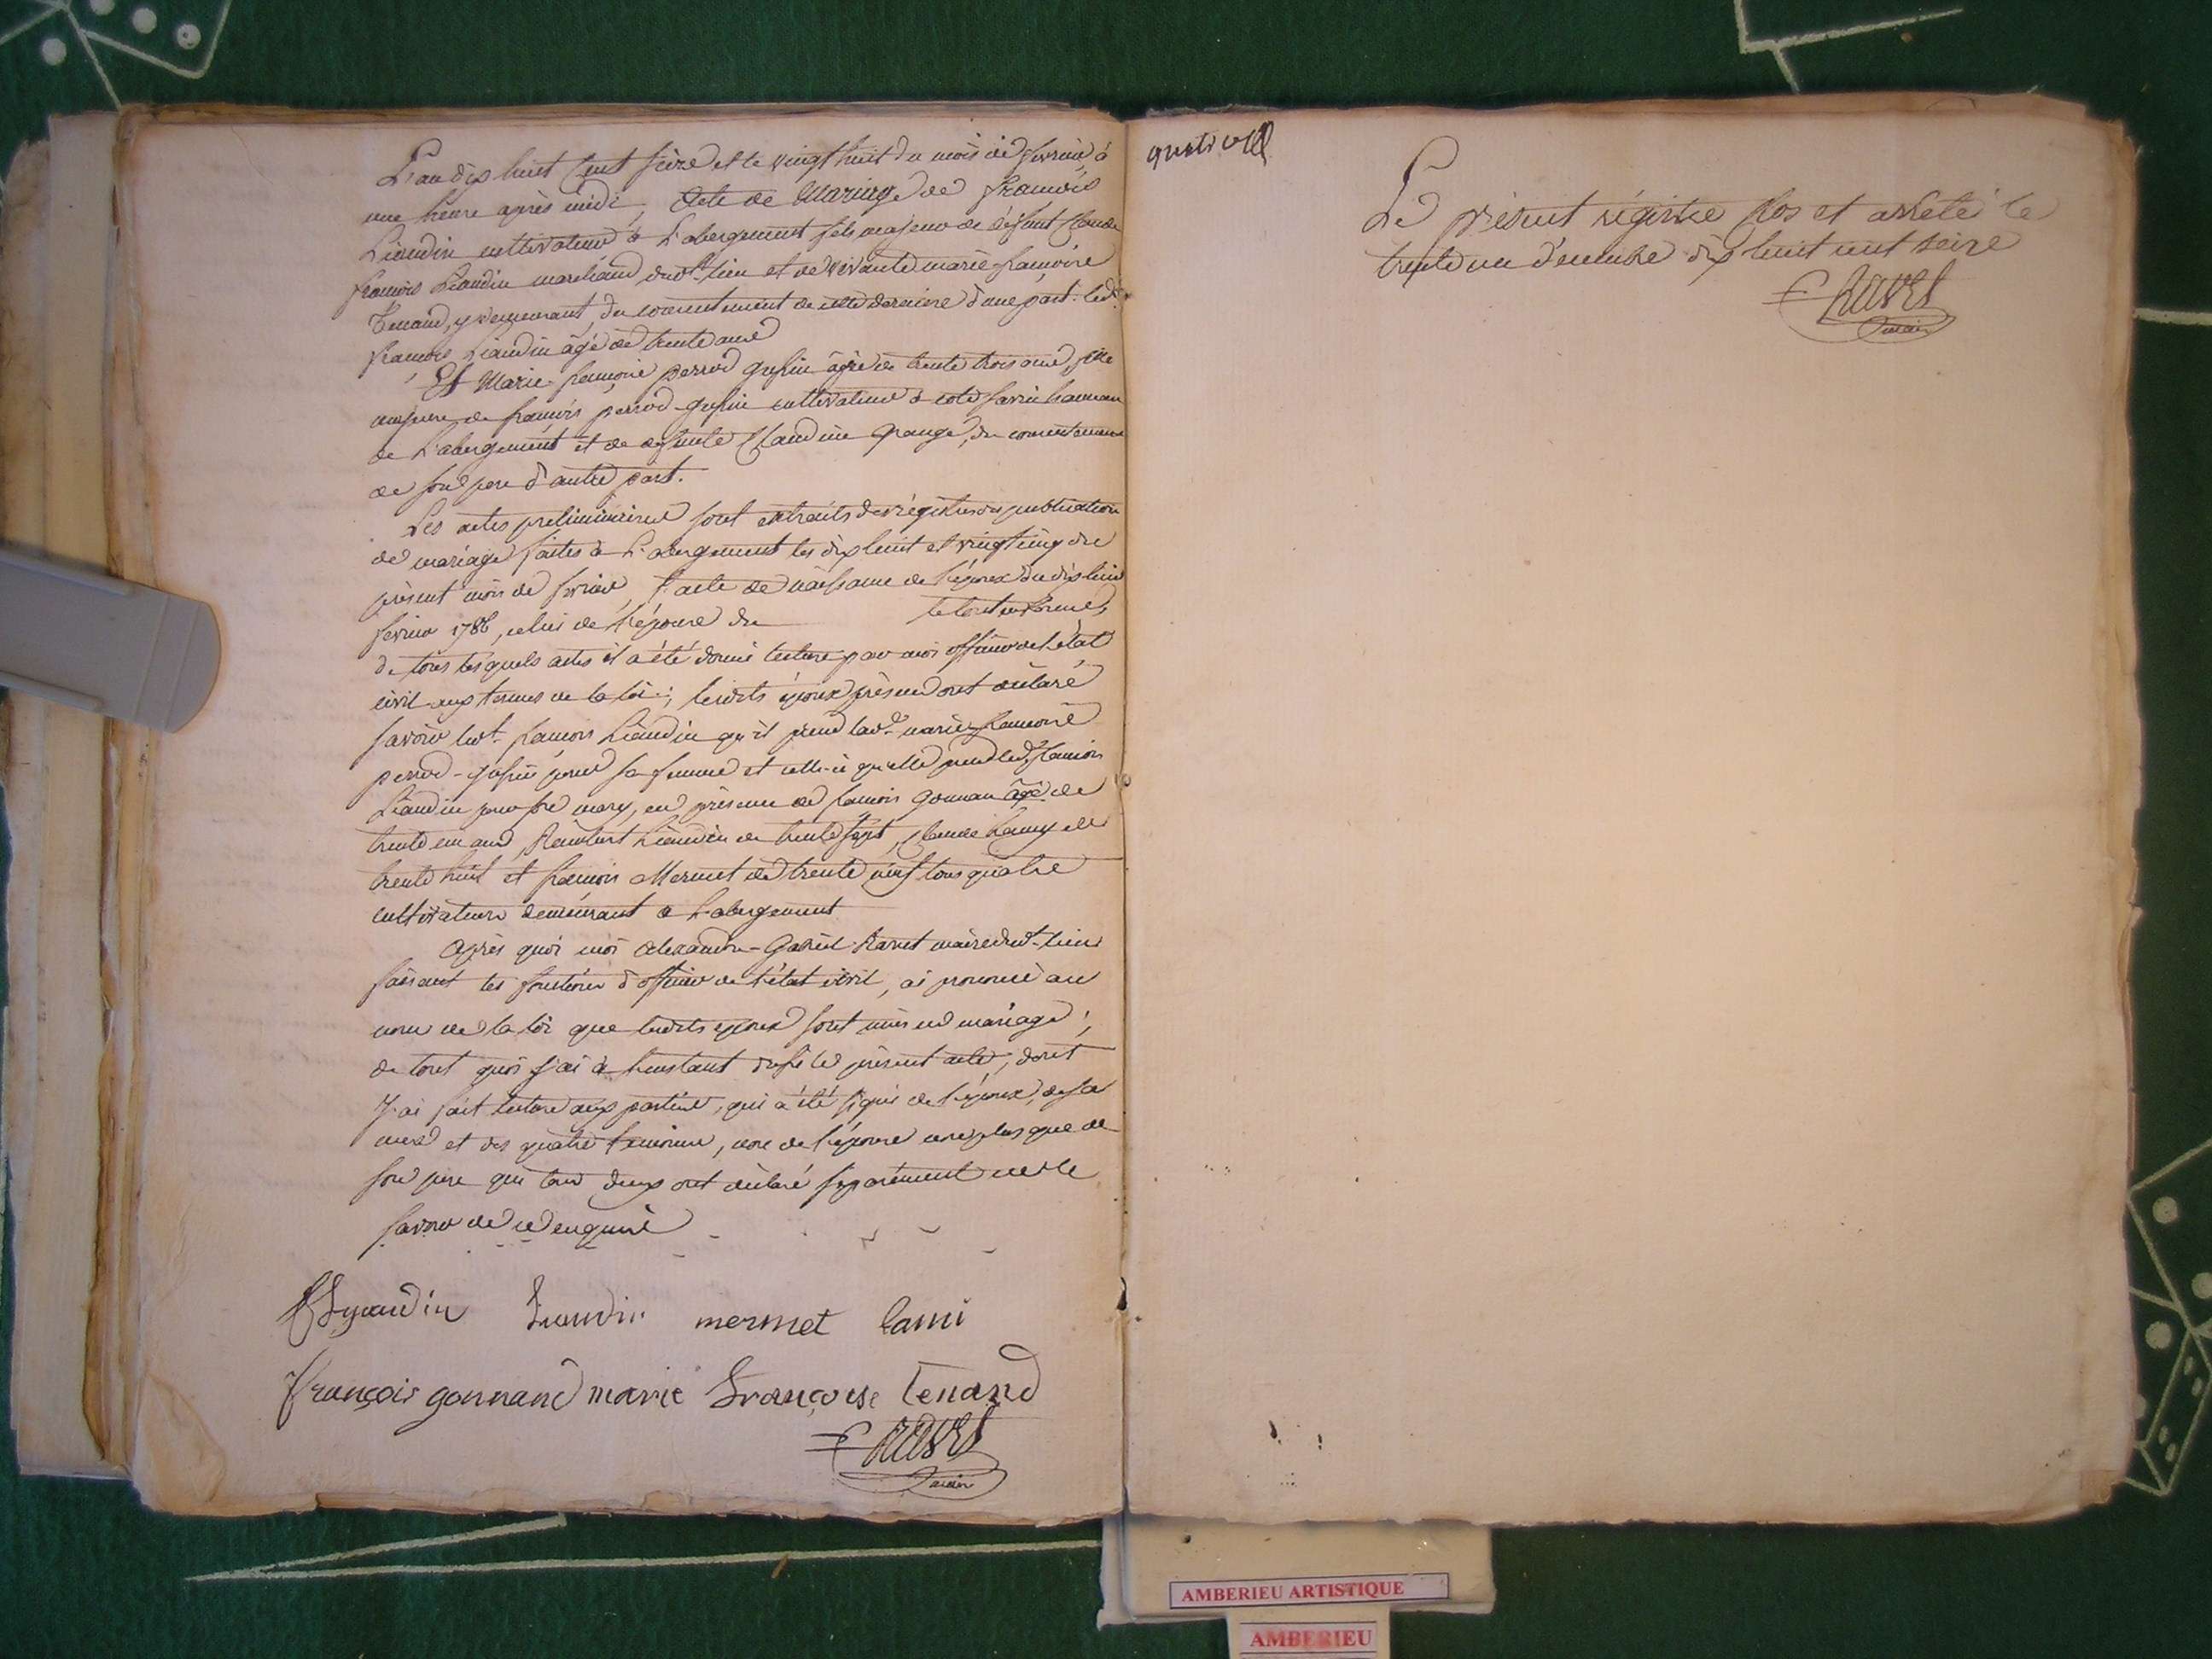 L'an dix huit cent seize et le vingt huit du mois de fevrier à
une heure après midi, Acte de Mariage de françois
Liaudin cultivateur à L'abergement fils majeur de défunt Claude
françois Liaudin marchand dud.t lieu et de vivante marie françoise
Tenand, y demeurant, du consentement de cette derniere d'une part. led.t
françois Liaudin âgé de trente ans
Et Marie françoise perrod gussin âgée de trente trois ans, fille
majeure de françois perrod-gussin cultivateur à hameau
de L'abergement et de defunte Claudine Grange, du consentement
de son pere d'autre part.
Les actes preliminaires sont extraits des régistres des publications
de mariage faites à L'abergement les dix huit et vingt cinq du
présent mois de fevrier, l'acte de naissance de l'époux du dix huit
fevrier 1786, celui de l'épouse du le tout en forme,
de tous lesquels actes il a été donné lecture par moi officier de l'état
civil aux termes de la loi; lesdits époux présens ont déclaré
savoir led.t françois Liaudin qu'il prend lad.e marie françoise
perrod-gussin pour sa femme et celle-ci qu'elle prend led.t françois
Liaudin pour son mary, en présence de françois Gonnan âgé de
trente un ans, Rambert Liaudin de trente sept, Claude Lamy de
trente huit et françois Mermet de trente neuf tous quatre
cultivateurs demeurant à L'abergement
Après quoi moi Alexandre-Gabriel Ravet maire dud.t lieu
faisant les fonctions d'officier de l'état civil, ai prononcé au
nom de la loi que lesdits époux sont unis en mariage;
de tout quoi j'ai à l'instant dressé le présent acte, dont
J'ai fait lecture aux parties, qui a été signé de l'époux, de sa
mere et des quatre temoins, non de l'épouse non plus que de
son pere qui tous deux ont déclaré séparément ne le
savoir de ce enquis
Lyaudin Liaudin mermet lami
François gonnand marie françoise tenand
RAVET
maire
Le présent régistre clos et arrêté le
trente un décembre dix huit cent seize
RAVET
maire
AMBERIEU ARTISTIQUE
AMBERIEU